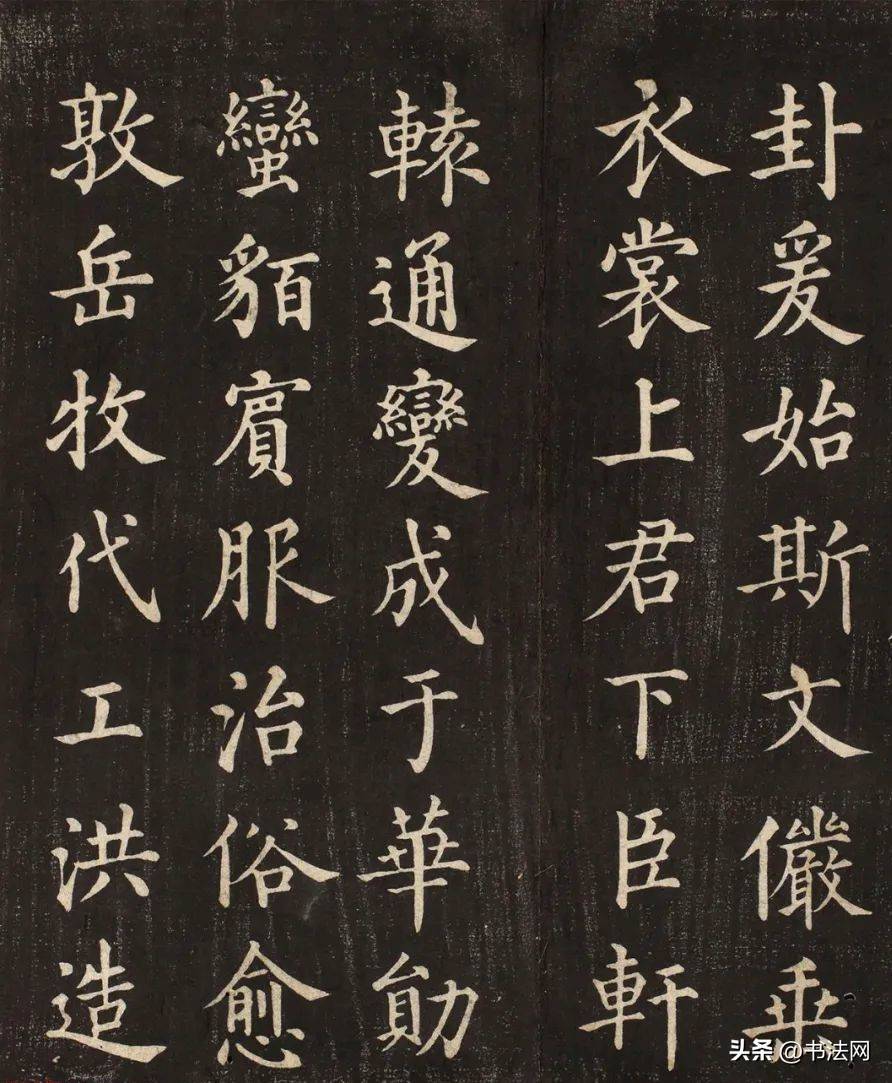 卦爰始斯文儼垂
衣裳上君下臣軒
轅通變成于華勛
蠻貊賓服治俗愈
敦岳牧代工洪造
头条 @书法网